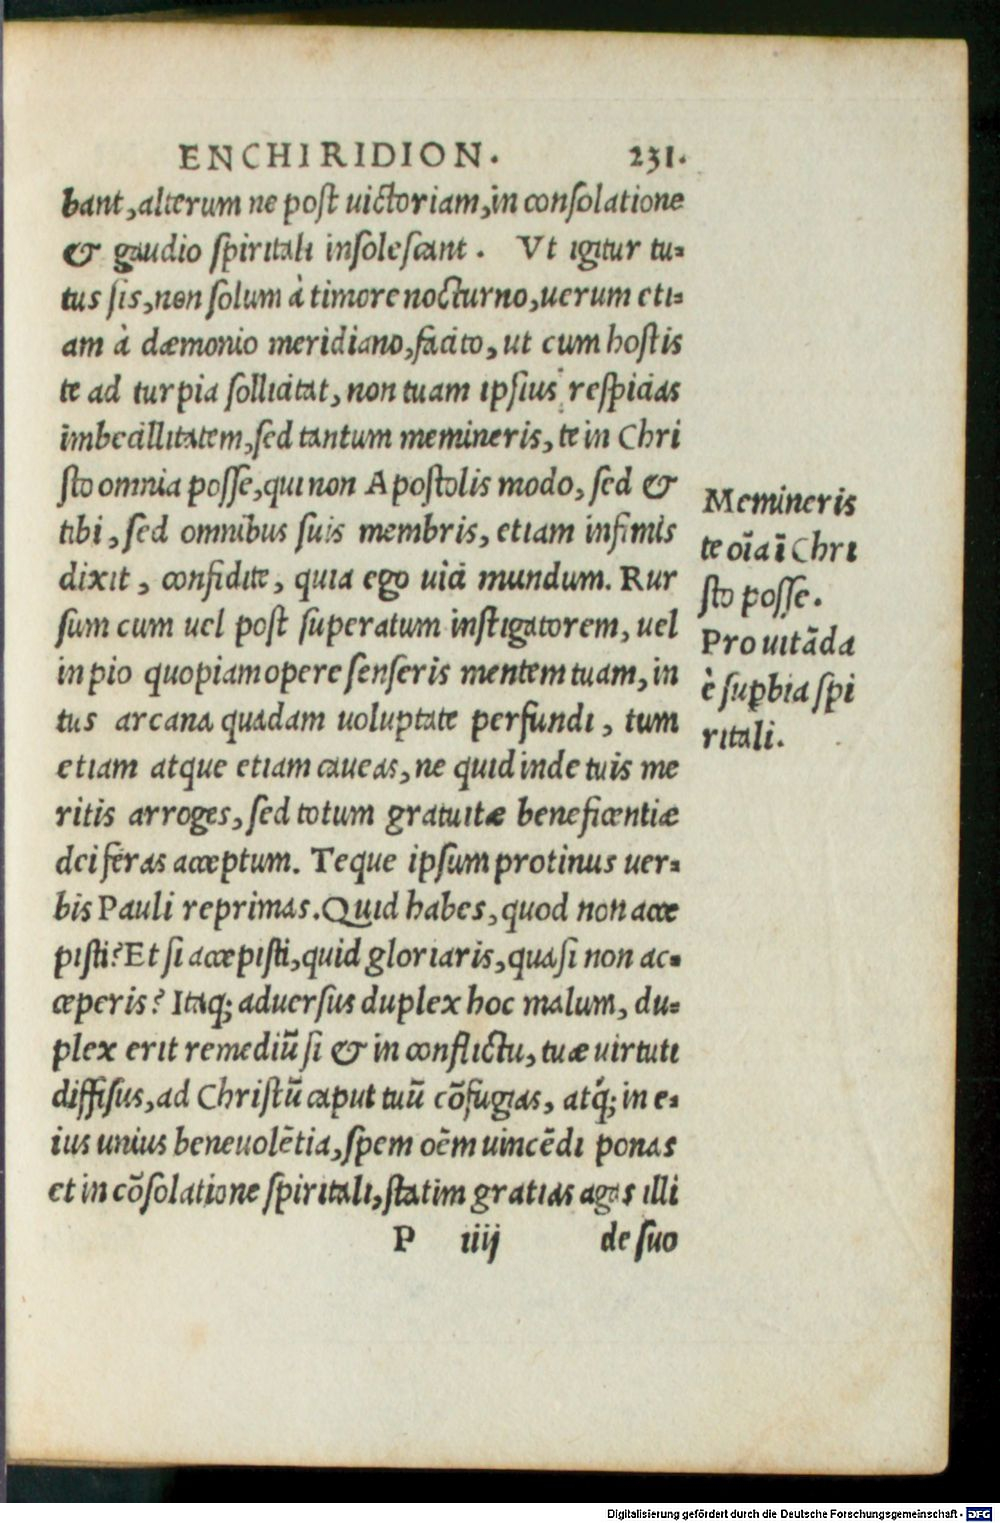 ENCHIRIDION. 231.
bant, alterum ne post uictoriam, in consolatione
& gaudio spiritali insolescant. Vt igitur tu-
tus sis, non solum à timore nocturno, uerum eti-
am à dæmonio meridiano, facito, ut cum hostis
te ad turpia sollicitat, non tuam ipsius respicias
imbecillitatem, sed tantum memineris, te in Chri
sto omnia posse, qui non Apostolis modo, sed &
tibi, sed omnibus suis membris, etiam infimis
dixit, confidite, quia ego uici mundum. Rur
sum cum uel post superatum instigatorem, uel
in pio quopiam opere senseris mentem tuam, in
tus arcana quadam uoluptate perfundi, tum
etiam atque etiam caueas, ne quid inde tuis me
ritis arroges, sed totum gratuitæ beneficentiæ
dei feras acceptum. Teque ipsum protinus uer-
bis Pauli reprimas. Quid habes, quod non acce
pisti? Et si accepisti, quid gloriaris, quasi non ac-
ceperis? Itaq; aduersus duplex hoc malum, du-
plex erit remediũ si & in conflictu, tuæ uirtuti
diffisus, ad Christũ caput tuũ cõfugias, atq́; in e-
ius unius beneuolẽtia, spem oẽm uincẽdi ponas
et in cõsolatione spiritali, statim gratias agas illi
P iiij de suo
Memineris
te oı̃a ı̃ Chri
sto posse.
Pro uitãda
è suꝑbia spi
ritali.
Digitalisierung gefördert durch die Deutsche Forschungsgemeinschaft - DFG